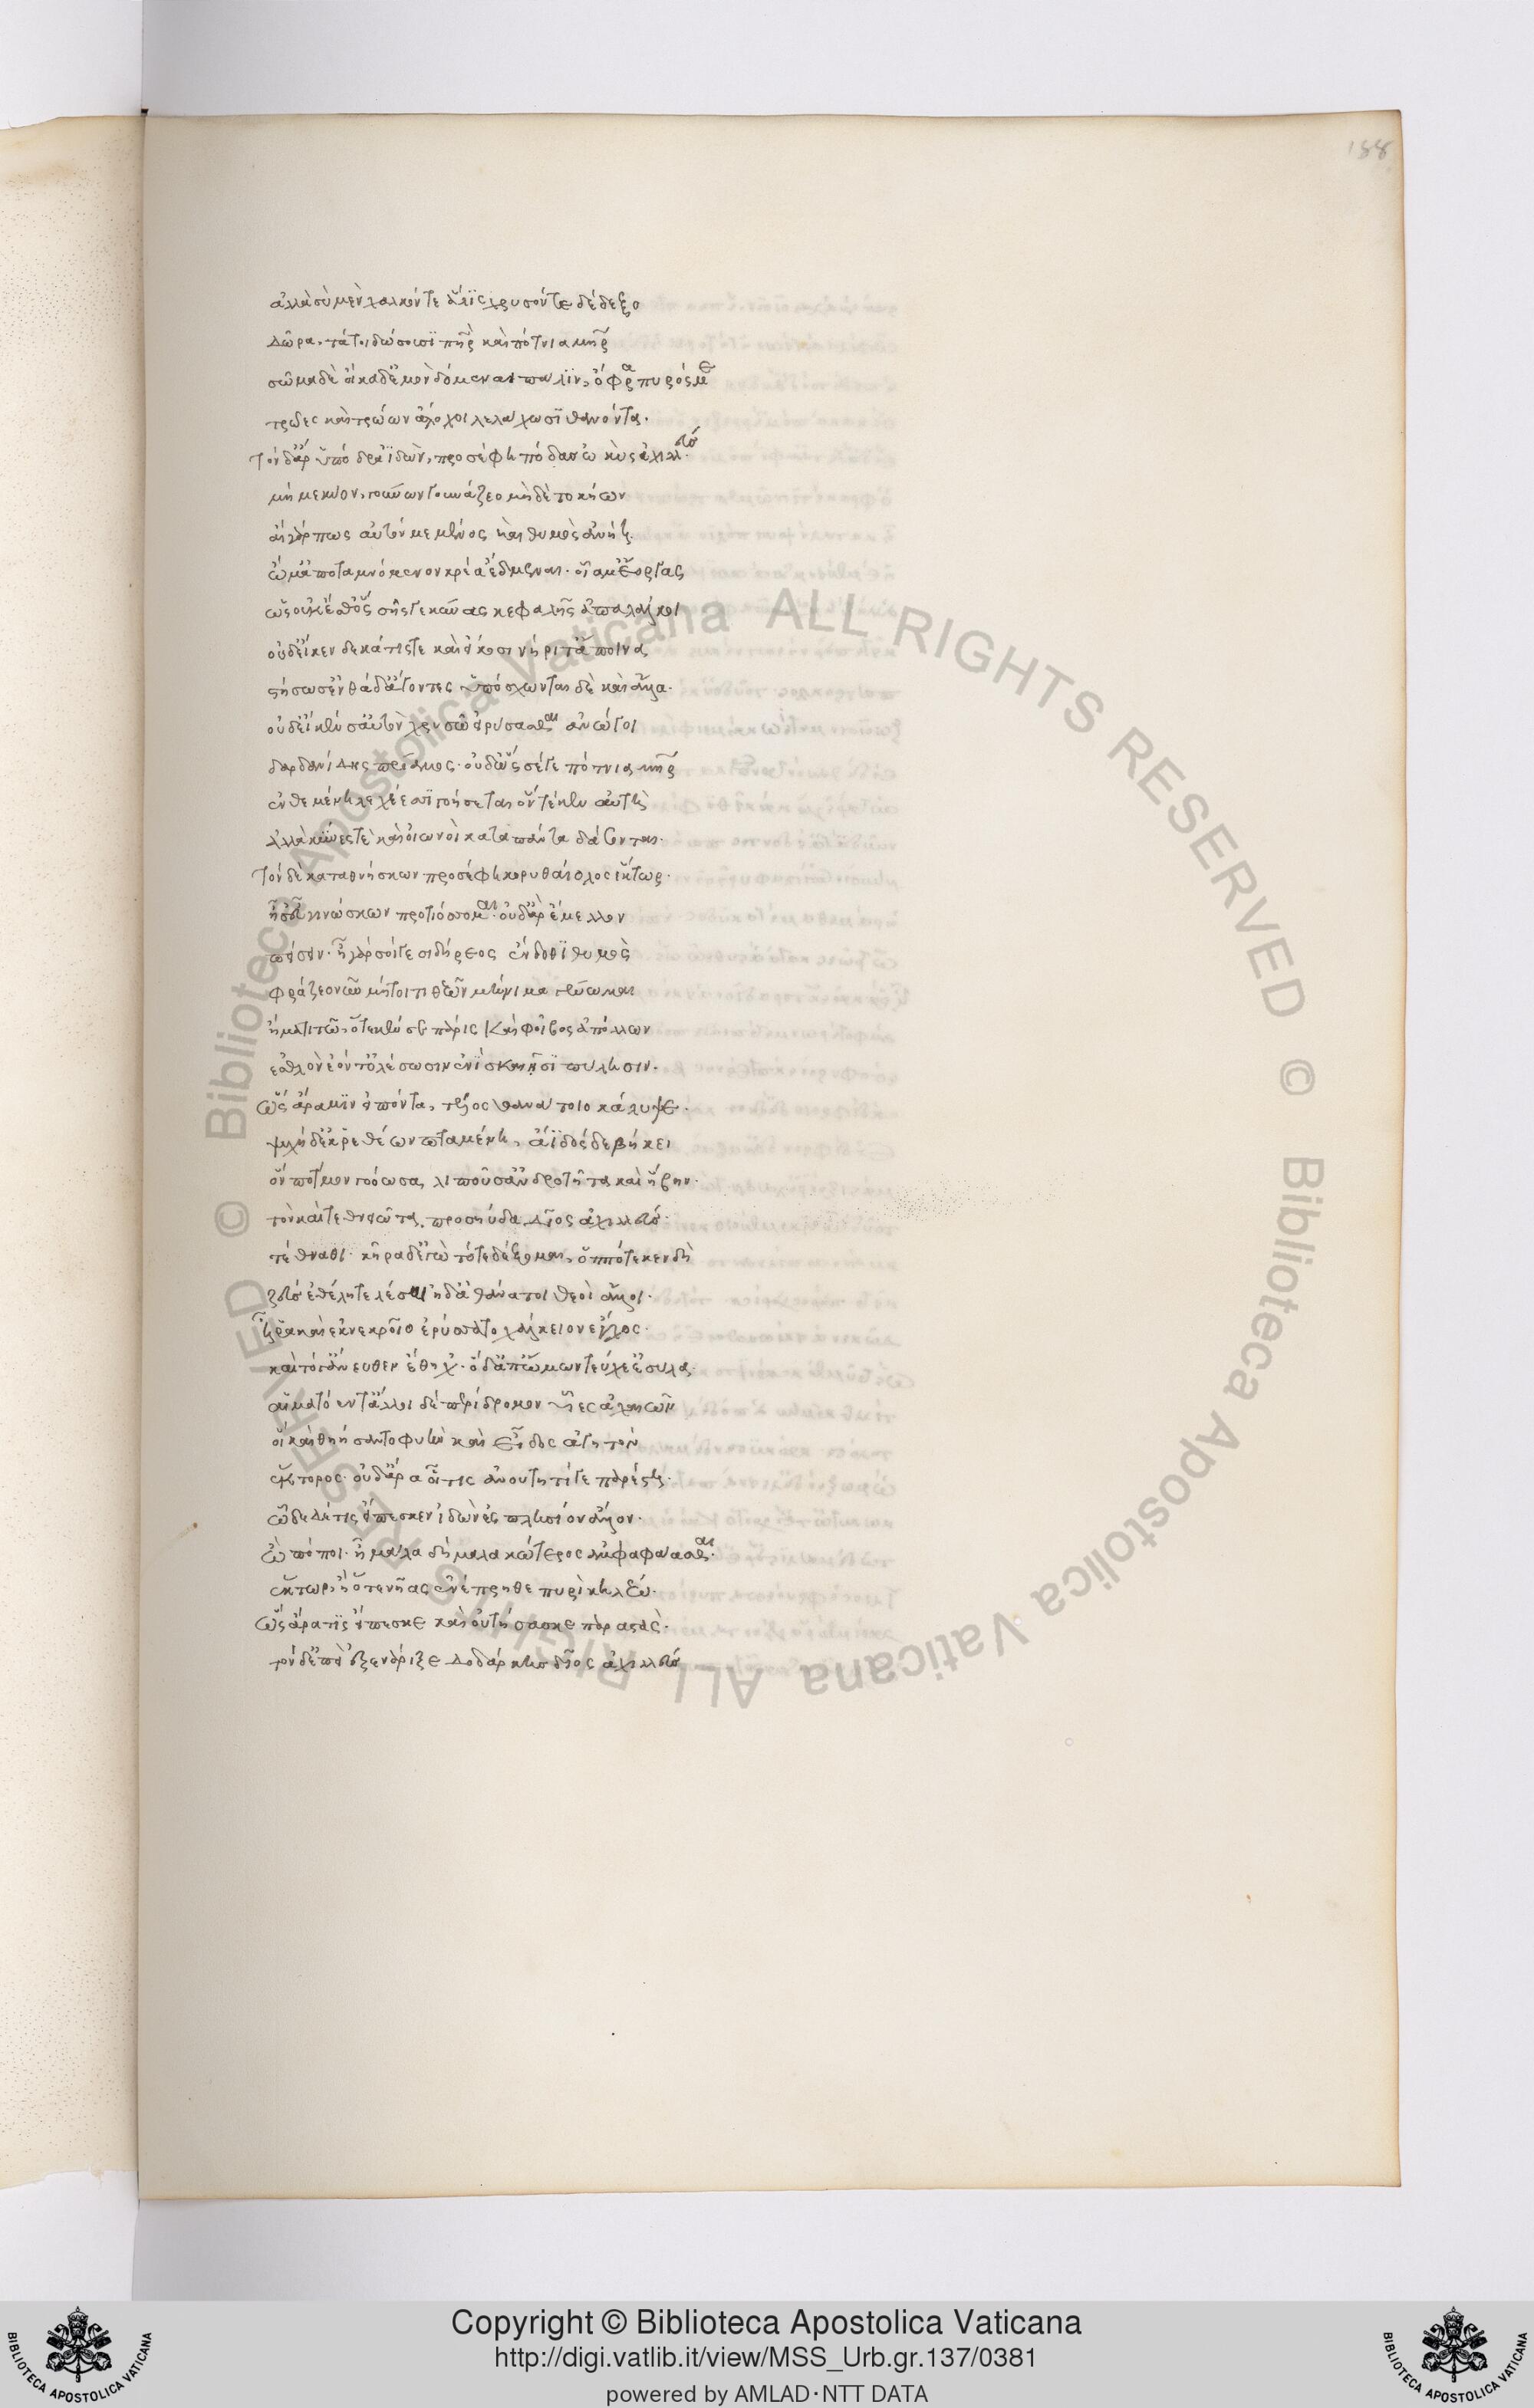 188
ἀλλὰ σὺ μὲν χαλκόν τε ἅλις χρυσόν τε δέδεξο
δῶρα, τά τοι δώσουσι πατὴρ καὶ πότνια μήτηρ
σῶμα δὲ οἴκαδ' ἐμὸν δόμεναι πάλιν, ὄφρα πυρός με
τρῶες καὶ τρώων ἄλοχοι λελάχωσι θανόντα.
Τὸν δ' ἄρ' ὑπόδρα ἰδὼν, προσέφη πόδας ὠκὺς ἀχιλλεύς.
μή με κύον, γούνων γουνάζεο μὴ δὲ τοκήων
αἲ γάρ πως αὐτόν με μένος καὶ θυμὸς ἀνήη.
ὤμ' ἀποταμνόμενον κρέα ἔδμεναι. οἷά μ' ἔοργας
ὡς οὐκ ἔσθ' ὃς σῆς γε κύνας κεφαλῆς ἀπαλάλκοι
οὐδ' εἴ κεν δεκάτις τε καὶ εἴκοσι νήριτ' ἄποινα
στήσωσ' ἐνθάδ' ἄγοντες ὑπόσχωνται δὲ καὶ ἄλλα.
οὐδ' εἴ κέν σ' αὐτὸν χρυσῶ ἐρύσασθαι ἀνώγοι
δαρδανίδης πρίαμος. οὐδ' ὣς σέ γε πότνια μήτηρ
ἐνθεμένη λεχέεσσι γοήσεται ὃν τέκεν αὐτὴ
ἀλλὰ κύνες τὲ καὶ οἰωνοὶ κατὰ πάντα δάσονται.
Τὸν δὲ καταθνήσκων προσέφη κορυθαίολος ἕκτωρ.
ἦ σ' εὖ γινώσκων προτιόσσομαι. οὐδ' ἄρ' ἔμελλον
πείσειν. ἦ γὰρ σοί γε σιδήρεος ἐν δοθὶ θυμὸς
φράζεο νῦν μή τοί τι θεῶν μήνιμα γένωμαι
ἤματι τῶ, ὅτε κέν σε πάρις καὶ φοῖβος ἀπόλλων
ἐσθλὸν ἐόντ' ὀλέσωσιν ἐνὶ σκαιῆσι πύλησιν.
Ὣς ἄρα μιν εἰπόντα, τέλος θανάτοιο κάλυψε.
ψυχὴ δ' ἐκ ῥεθέων πταμένη, ἄϊδόσδε βεβήκει
ὃν πότμον γοόωσα, λιποῦσ' ἀνδροτῆτα καὶ ἥβην.
τὸν καί τεθνειῶτα, προσηύδα δῖος ἀχιλλεύς.
τέθναθι. κῆρα δ' ἐγὼ τότε δέξομαι, ὁππότε κεν δὴ
ζεὺς ἐθέλη τελέσαι ἠδ' ἀθάνατοι θεοὶ ἄλλοι.
Ἦ ῥα καὶ ἐκ νεκροῖο ἐρύσσατο χάλκειον ἔγχος.
καὶ τό γ' ἄνευθεν ἔθηχ'. ὁ δ' ἀπ' ὤμων τεύχε' ἐσύλα.
αἱματόεντ' ἄλλοι δὲ περίδραμον υἷες ἀχαιῶν
οἳ καὶ θηήσαντο φυὴν καὶ εἶδος ἀγητὸν
ἕκτορος. οὐδ' ἄρα οἵ τις ἀνουτητί γε παρέστη.
ὧδε δέ τις εἴπεσκεν ἰδὼν ἐς πλησίον ἄλλον.
Ὢ πόποι. ἦ μάλα δὴ μαλακώτερος ἀμφαφάασθαι.
ἕκτωρ, ἢ ὅτε νῆας ἐνέπρηθε πυρὶ κηλέω.
Ὣς ἄρα τις εἴπεσκε καὶ οὐτήσασκε παραστάς.
τὸν δ' ἐπεὶ ἐξενάριξε ποδάρκης δῖος ἀχιλλεύς
Copyright © Biblioteca Apostolica Vaticana
http://digi.vatlib.it/view/MSS_Urb.gr.137/0381
powered by AMLAD·NTT DATA